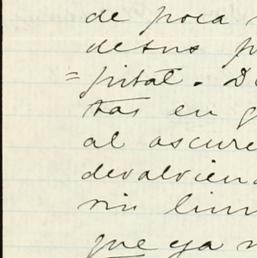 de poca
de sus p
= pitat. D
tas en g
al oscure
devolvien
sin lim
que ya n